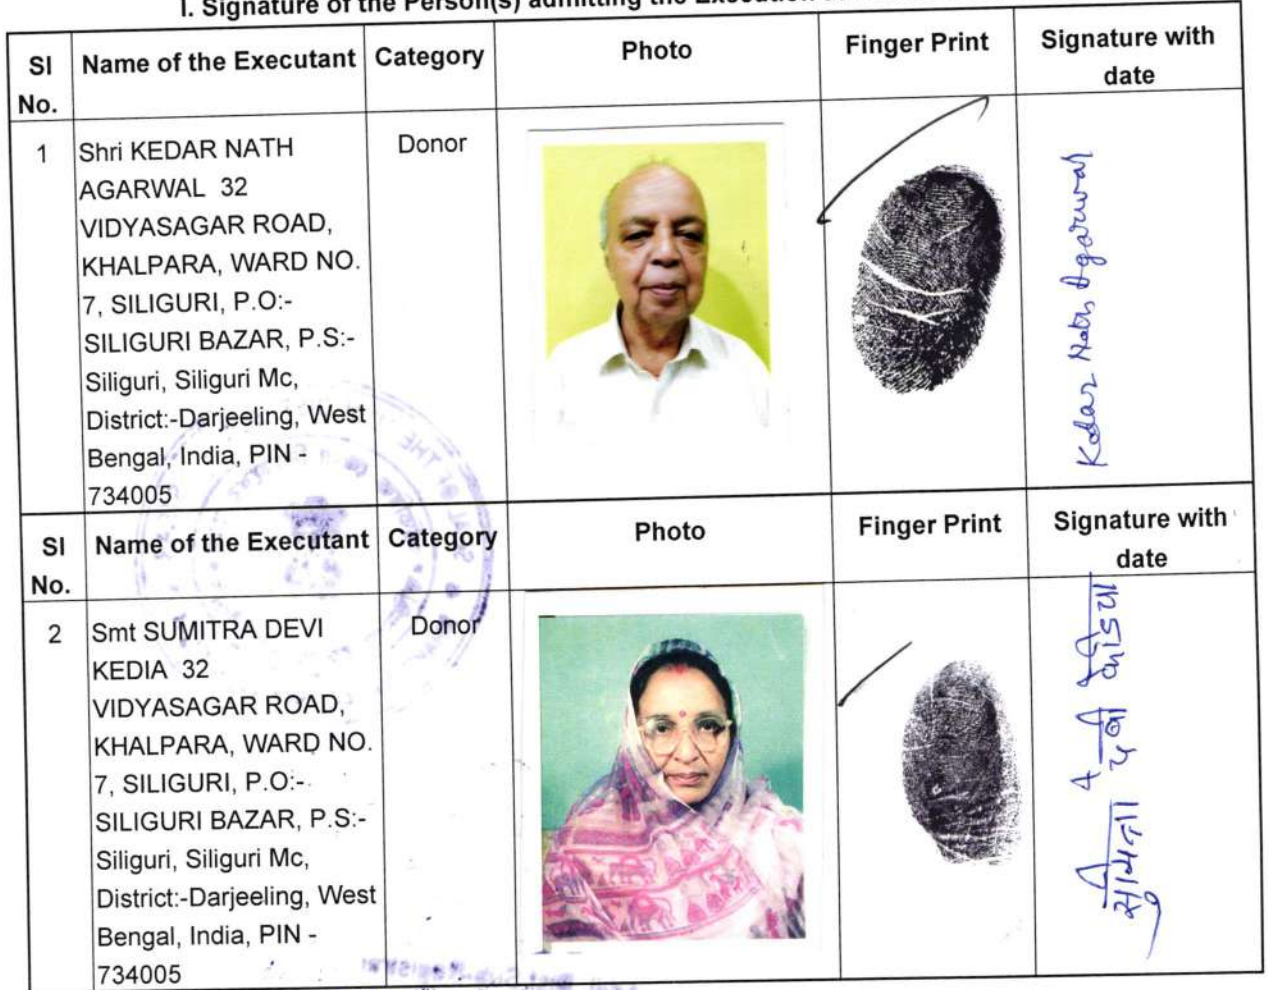 I. Signature of the Person(s) admitting the Execution
Sl No. Name of the Executant Category Photo Finger Print Signature with date
1 Shri KEDAR NATH Donor
AGARWAL 32
VIDYASAGAR ROAD,
KHALPARA, WARD NO.
7, SILIGURI, P.O:-
SILIGURI BAZAR, P.S:-
Siliguri, Siliguri Mc,
District:-Darjeeling, West
Bengal, India, PIN -
734005
Kedar Nath Agarwal
Sl No. Name of the Executant Category Photo Finger Print Signature with date
2 Smt SUMITRA DEVI Donor
KEDIA 32
VIDYASAGAR ROAD,
KHALPARA, WARD NO.
7, SILIGURI, P.O:-
SILIGURI BAZAR, P.S:-
Siliguri, Siliguri Mc,
District:-Darjeeling, West
Bengal, India, PIN -
734005
सुमित्रा देवी केडिया